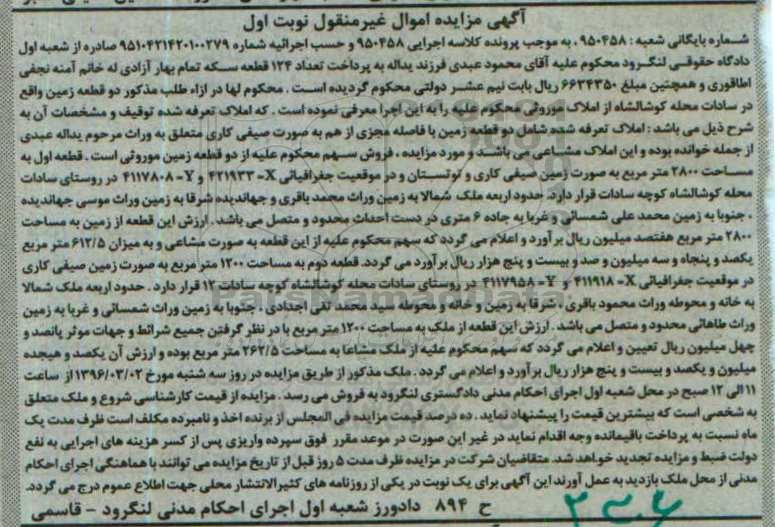 آگهی مزایده اموال غیرمنقول نوبت اول
شماره بایگانی شعبه : ۹۵۰۴۵۸ ، به موجب پرونده کلاسه اجرایی ۹۵۰۴۵۸ و حسب اجرائیه شماره ۹۵۱۰۴۲۱۴۲۰۱۰۰۲۷۹ صادره از شعبه اول
دادگاه حقوقی لنگرود محکوم علیه آقای محمود عبدی فرزند یداله به پرداخت تعداد ۱۲۴ قطعه سکه تمام بهار آزادی له خانم آمنه نجفی
اطاقوری و همچنین مبلغ ۶۶۳۴۳۵۰ ریال بابت نیم عشر دولتی محکوم گردیده است . محکوم لها در ازاء طلب مذکور دو قطعه زمین واقع
در سادات محله کوشالشاه از املاک موروثی محکوم علیه را به این اجرا معرفی نموده است . که املاک تعرفه شده توقیف و مشخصات آن به
شرح ذیل می باشد : املاک تعرفه شده شامل دو قطعه زمین با فاصله مجزی از هم به صورت صیفی کاری متعلق به وراث مرحوم یداله عبدی
از جمله خوانده بوده و این املاک مشاعی می باشند و مورد مزایده ، فروش سهم محکوم علیه از دو قطعه زمین موروثی است . قطعه اول به
مساحت ۲۸۰۰ متر مربع به صورت زمین صیفی کاری و توتستان و در موقعیت جغرافیائی X- ۴۲۱۹۳۳ و Y- ۴۱۱۷۸۰۸ در روستای سادات
محله کوشالشاه کوچه سادات قرار دارد. حدود اربعه ملک شمالا به زمین وراث محمد باقری و جهاندیده شرقا به زمین وراث موسی جهاندیده
، جنوبا به زمین محمد علی شمسائی و غربا به جاده ۶ متری در دست احداث محدود و متصل می باشد . ارزش این قطعه از زمین به مساحت
۲۸۰۰ متر مربع هفتصد میلیون ریال برآورد و اعلام می گردد که سهم محکوم علیه از این قطعه به صورت مشاعی و به میزان ۶۱۲/۵ متر مربع
یکصد و پنجاه و سه میلیون و صد و بیست و پنج هزار ریال برآورد می گردد. قطعه دوم به مساحت ۱۲۰۰ متر مربع به صورت زمین صیفی کاری
در موقعیت جغرافیائی X- ۴۱۱۹۱۸ و Y- ۴۱۱۷۹۵۸ در روستای سادات محله کوشالشاه کوچه سادات ۱۲ قرار دارد . حدود اربعه ملک شمالا
به خانه و محوطه وراث محمود باقری ، شرقا به زمین و خانه و محوطه سید محمد تقی اجدادی ، جنوبا به زمین وراث شمسائی و غربا به زمین
وراث طاهائی محدود و متصل می باشد . ارزش این قطعه از ملک به مساحت ۱۲۰۰ متر مربع با در نظر گرفتن جمیع شرائط و جهات موثر پانصد و
چهل میلیون ریال تعیین و اعلام می گردد که سهم محکوم علیه از ملک مشاعا به مساحت ۲۶۲/۵ متر مربع بوده و ارزش آن یکصد و هیجده
میلیون و یکصد و بیست و پنج هزار ریال برآورد و اعلام می گردد . ملک مذکور از طریق مزایده در روز سه شنبه مورخ ۱۳۹۶/۰۳/۰۲ از ساعت
۱۱ الی ۱۲ صبح در محل شعبه اول اجرای احکام مدنی دادگستری لنگرود به فروش می رسد . مزایده از قیمت کارشناسی شروع و ملک متعلق
به شخصی است که بیشترین قیمت را پیشنهاد نماید . ده درصد قیمت مزایده فی المجلس از برنده اخذ و نامبرده مکلف است ظرف مدت یک
ماه نسبت به پرداخت باقیمانده وجه اقدام نماید در غیر این صورت در موعد مقرر فوق سپرده واریزی پس از کسر هزینه های اجرایی به نفع
دولت ضبط و مزایده تجدید خواهد شد. متقاضیان شرکت در مزایده ظرف مدت ۵ روز قبل از تاریخ مزایده می توانند با هماهنگی اجرای احکام
مدنی از محل ملک بازدید به عمل آورند این آگهی برای یک نوبت در یکی از روزنامه های کثیرالانتشار محلی جهت اطلاع عموم درج می گردد.
ح ۸۹۴ دادورز شعبه اول اجرای احکام مدنی لنگرود - قاسمی